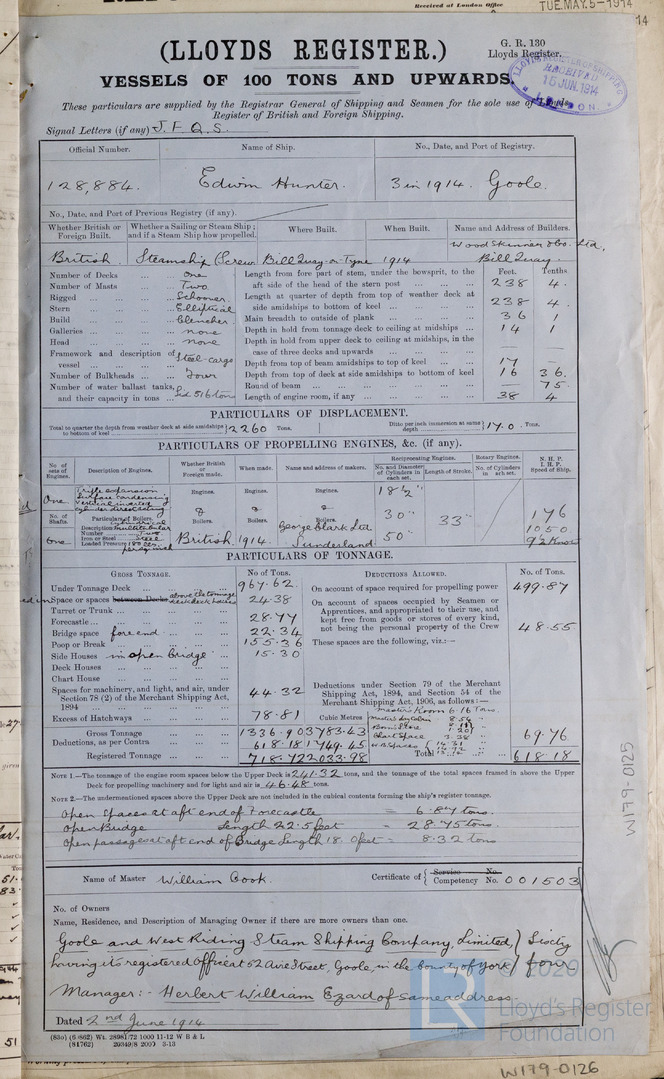 Received at London Office
TUE. MAY. 5-1914
14
(LLOYDS REGISTER.)
G. R. 130
Lloyds Register.
VESSELS OF 100 TONS AND UPWARDS.
LLOYD'S REGISTER OF SHIPPING
RECEIVED
15 JUN. 1914
LONDON.
These particulars are supplied by the Registrar General of Shipping and Seamen for the sole use of Lloyds
Register of British and Foreign Shipping.
Signal Letters (if any) J. F. Q. S.
Official Number. Name of Ship. No., Date, and Port of Registry.
128,884. Edwin Hunter. 3 in 1914. Goole.
No., Date, and Port of Previous Registry (if any).
Whether British or Foreign Built. Whether a Sailing or Steam Ship; and if a Steam Ship how propelled. Where Built. When Built. Name and Address of Builders.
British Steamship Screw Bill Quay-on-Tyne 1914 Wood Skinner & Co. Ltd, Bill Quay.
Number of Decks ... ... One
Number of Masts ... ... Two
Rigged ... ... ... Schooner
Stern ... ... ... Elliptical
Build ... ... ... Clencher
Galleries ... ... ... none
Head ... ... ... none
Framework and description of vessel ... ... ... Steel-cargo
Number of Bulkheads ... ... Four
Number of water ballast tanks, and their capacity in tons ... 516 tons
Feet. Tenths
Length from fore part of stem, under the bowsprit, to the aft side of the head of the stern post ... ... ... 238 4.
Length at quarter of depth from top of weather deck at side amidships to bottom of keel ... ... ... 238 4
Main breadth to outside of plank ... ... ... 36 1
Depth in hold from tonnage deck to ceiling at midships ... 14 1
Depth in hold from upper deck to ceiling at midships, in the case of three decks and upwards ... ... ... — —
Depth from top of beam amidships to top of keel ... ... 17
Depth from top of deck at side amidships to bottom of keel 16 36
Round of beam ... ... ... — 75
Length of engine room, if any ... ... ... 38 4
PARTICULARS OF DISPLACEMENT.
Total to quarter the depth from weather deck at side amidships to bottom of keel } 2260 Tons. Ditto per inch immersion at same depth } 17.0 Tons.
PARTICULARS OF PROPELLING ENGINES, &c. (if any).
No. of sets of Engines. Description of Engines. Whether British or Foreign made. When made. Name and address of makers. Reciprocating Engines. No. and Diameter of Cylinders in each set. Length of Stroke. Rotary Engines. No. of Cylinders in each set. N. H. P. I. H. P. Speed of Ship.
One Triple expansion Surface condensing Vertical inverted cylinder direct acting
Engines. Engines. Engines.
18½"
30"
50"
33"
176
1050
9½ Knots
No. of Shafts. One
Particulars of Boilers.
Description Multitubular
Number ... Two
Iron or Steel Steel
Loaded Pressure 180 lbs. per sq inch
Boilers. Boilers. Boilers.
British 1914 George Clark Ltd Sunderland
PARTICULARS OF TONNAGE.
GROSS TONNAGE. No. of Tons.
Under Tonnage Deck ... ... ... 967.62.
Space or spaces between Decks above the tonnage deck 24.38
Turret or Trunk ... ... ...
Forecastle ... ... ... 28.77
Bridge space fore end ... ... 22.34
Poop or Break ... ... ... 155.36
Side Houses in open Bridge ... 15.30
Deck Houses ... ... ...
Chart House ... ... ...
Spaces for machinery, and light, and air, under Section 78 (2) of the Merchant Shipping Act, 1894 ... ... ... 44.32
Excess of Hatchways ... ... 78.81
Cubic Metres
Gross Tonnage 1336.90 3783.43
Deductions, as per Contra ... 618.18 1749.45
Registered Tonnage ... 718.72 2033.98
DEDUCTIONS ALLOWED. No. of Tons.
On account of space required for propelling power 499.87
On account of spaces occupied by Seamen or Apprentices, and appropriated to their use, and kept free from goods or stores of every kind, not being the personal property of the Crew 48.55
These spaces are the following, viz.:—
Deductions under Section 79 of the Merchant Shipping Act, 1894, and Section 54 of the Merchant Shipping Act, 1906, as follows:—
Master's Room 6.16 Tons.
Chart Space 3.38
W.B. Spaces
69.76
Total 618.18
NOTE 1.—The tonnage of the engine room spaces below the Upper Deck is 241.32 tons, and the tonnage of the total spaces framed in above the Upper
Deck for propelling machinery and for light and air is 46.48 tons.
NOTE 2.—The undermentioned spaces above the Upper Deck are not included in the cubical contents forming the ship's register tonnage.
Open Spaces at aft end of Forecastle = 6.87 tons.
Open Bridge Length 22.5 feet = 28.75 tons.
Open passageway at aft end of Bridge Length 18.0 feet = 8.32 tons
Name of Master William Cook. Certificate of { Service No. Competency No. 001503
No. of Owners
Name, Residence, and Description of Managing Owner if there are more owners than one.
Goole and West Riding Steam Shipping Company, Limited, } Sixty
having its registered Office at 52 Aire Street, Goole, in the County of York } four
Manager:- Herbert William Ezard of same address.
Dated 2nd June 1914
(830) (6 862) Wt. 28981/72 1000 11-12 W B & L
(81762) 20349/8 2000 3-13
W179-0125
W179-0126
© 2020
Lloyd's Register
Foundation
LR
51